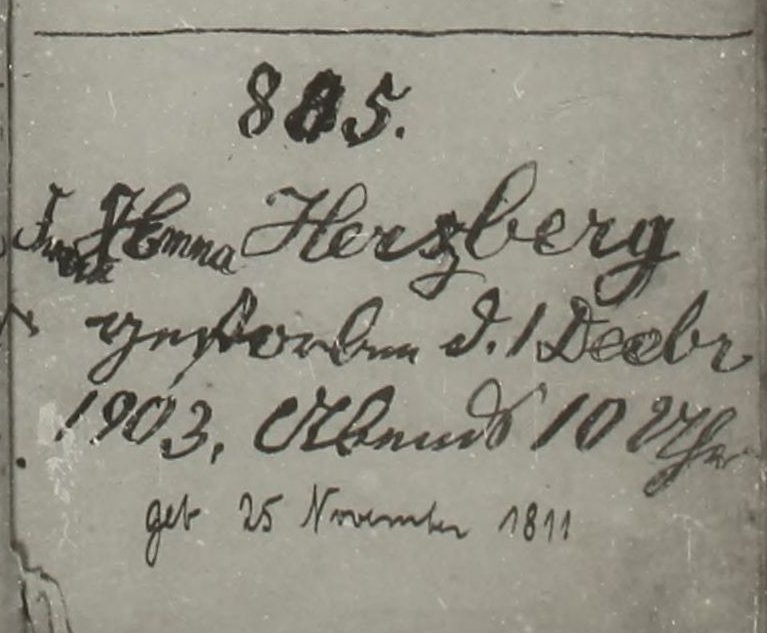 805.
Herzberg
gestorben d. 1 Decbr
1903, Abends 10 Uhr
geb 25 November 1811